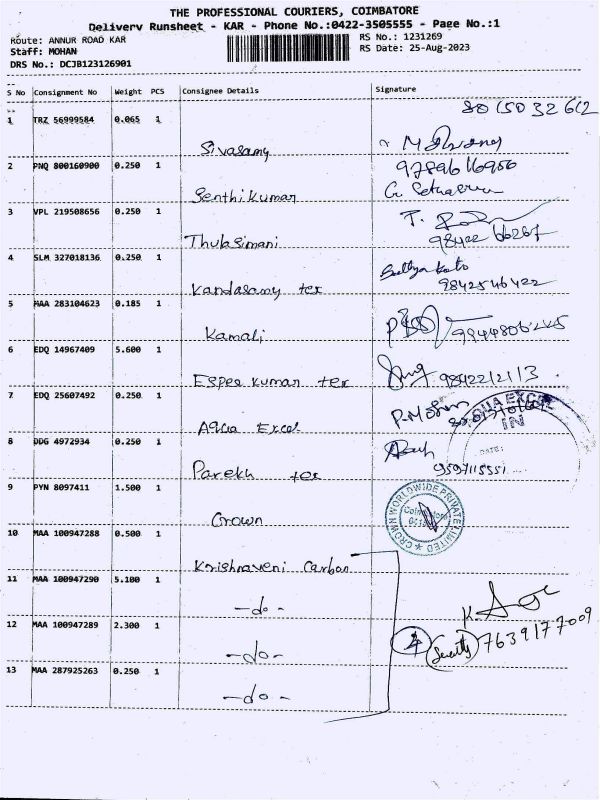 THE PROFESSIONAL COURIERS, COIMBATORE
Delivery Runsheet - KAR - Phone No.:0422-3505555 - Page No.:1
Route: ANNUR ROAD KAR
Staff: MOHAN
DRS No.: DCJB123126901
RS No.: 1231269
RS Date: 25-Aug-2023
S No Consignment No Weight PCS Consignee Details Signature
1 TRZ 56999584 0.065 1 Sivasamy
2 PNQ 800160900 0.250 1 Senthikumar
3 VPL 219508656 0.250 1 Thulasimani
4 SLM 327018136 0.250 1 Kandasamy tex 9842546422
5 MAA 283104623 0.185 1 Kamali
6 EDQ 14967409 5.600 1 Espee kumar tex
7 EDQ 25607492 0.250 1 Aqua Excel P.Mohan
8 DDG 4972934 0.250 1 Parekh tex 9597115551
9 PYN 8097411 1.500 1 Crown
CROWN WORLDWIDE PRIVATE LIMITED
10 MAA 100947288 0.500 1 Krishnaveni Carbon
11 MAA 100947290 5.100 1 -do-
12 MAA 100947289 2.300 1 -do- 4 7639177009
13 MAA 287925263 0.250 1 -do-